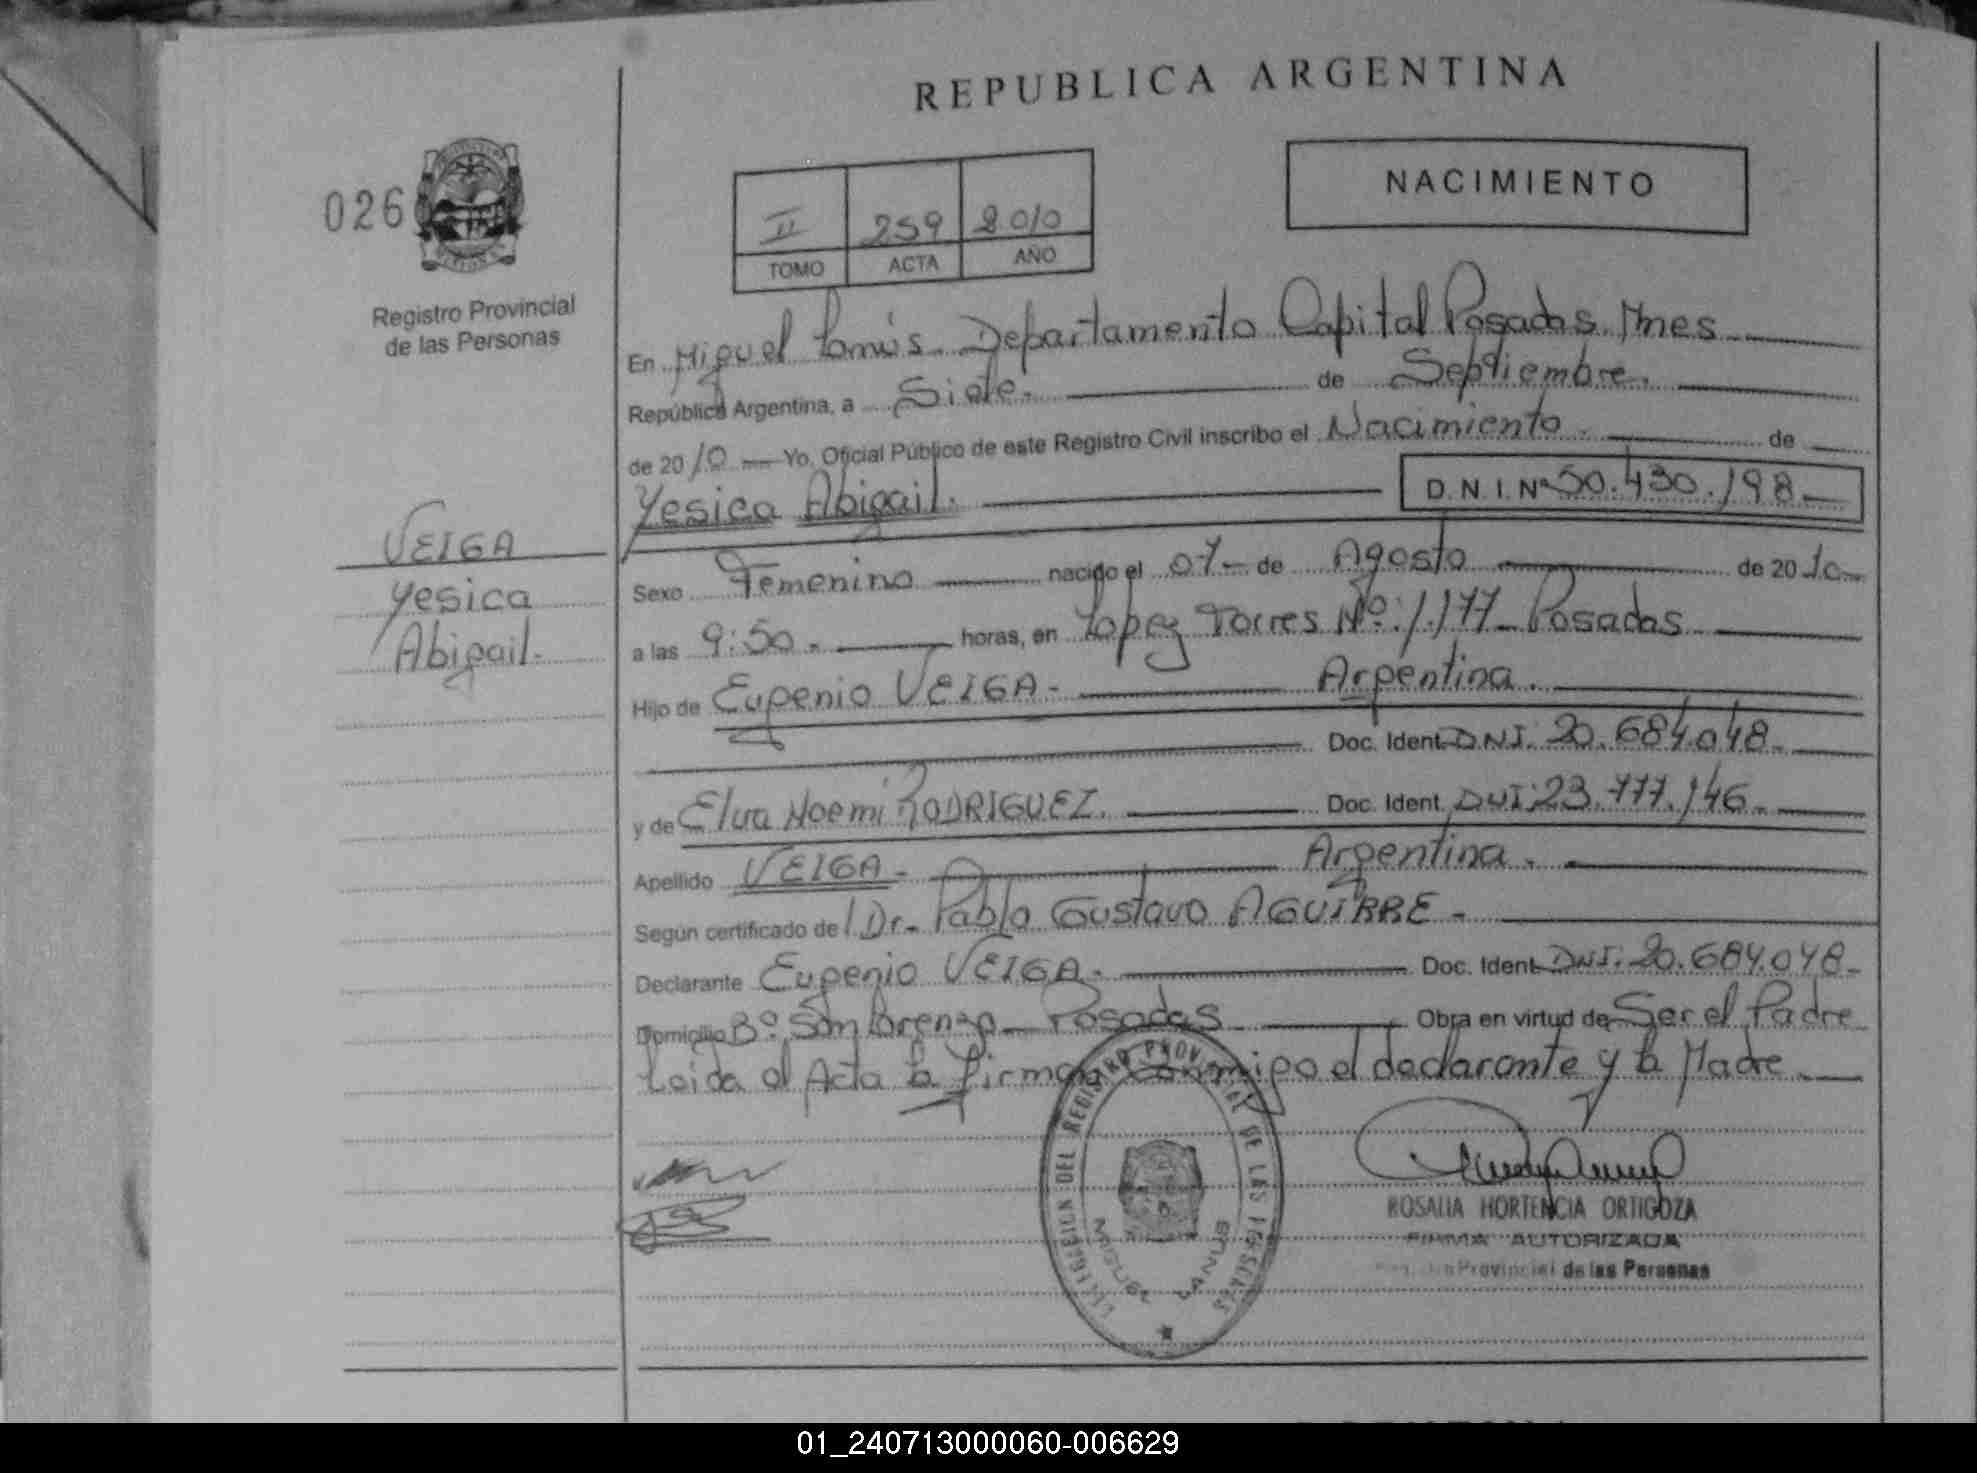 REPUBLICA ARGENTINA
026
NACIMIENTO
II 259 2010
TOMO ACTA AÑO
Registro Provincial
de las Personas
En Miguel Lanús. Departamento Capital Posadas Mnes
República Argentina, a Siete. de Septiembre.
de 2010 Yo, Oficial Público de este Registro Civil inscribo el Nacimiento. de
Yesica Abigail. D.N.I.Nº 50.430.198
VEIGA
Yesica
Abigail.
Sexo Femenino nacido el 07 de Agosto de 2010
a las 9:50. horas, en Lopez Torres Nº: 1.177 Posadas
Hijo de Eugenio VEIGA. Argentina.
Doc. Ident. DNI. 20.684.048.
y de Elva Noemi RODRIGUEZ. Doc. Ident. DNI: 23.777.146.
Apellido VEIGA. Argentina.
Según certificado de l Dr. Pablo Gustavo AGUIRRE.
Declarante Eugenio VEIGA. Doc. Ident. DNI: 20.684.048.
Domicilio Bº San Lorenzo Posadas Obra en virtud de Ser el Padre
Leida el Acta la firman conmigo el declarante y la Madre.
DELEGACION DEL REGISTRO PROVINCIAL DE LAS PERSONAS
MIGUEL LANUS
ROSALIA HORTENCIA ORTIGOZA
FIRMA AUTORIZADA
Registro Provincial de las Personas
01_240713000060-006629